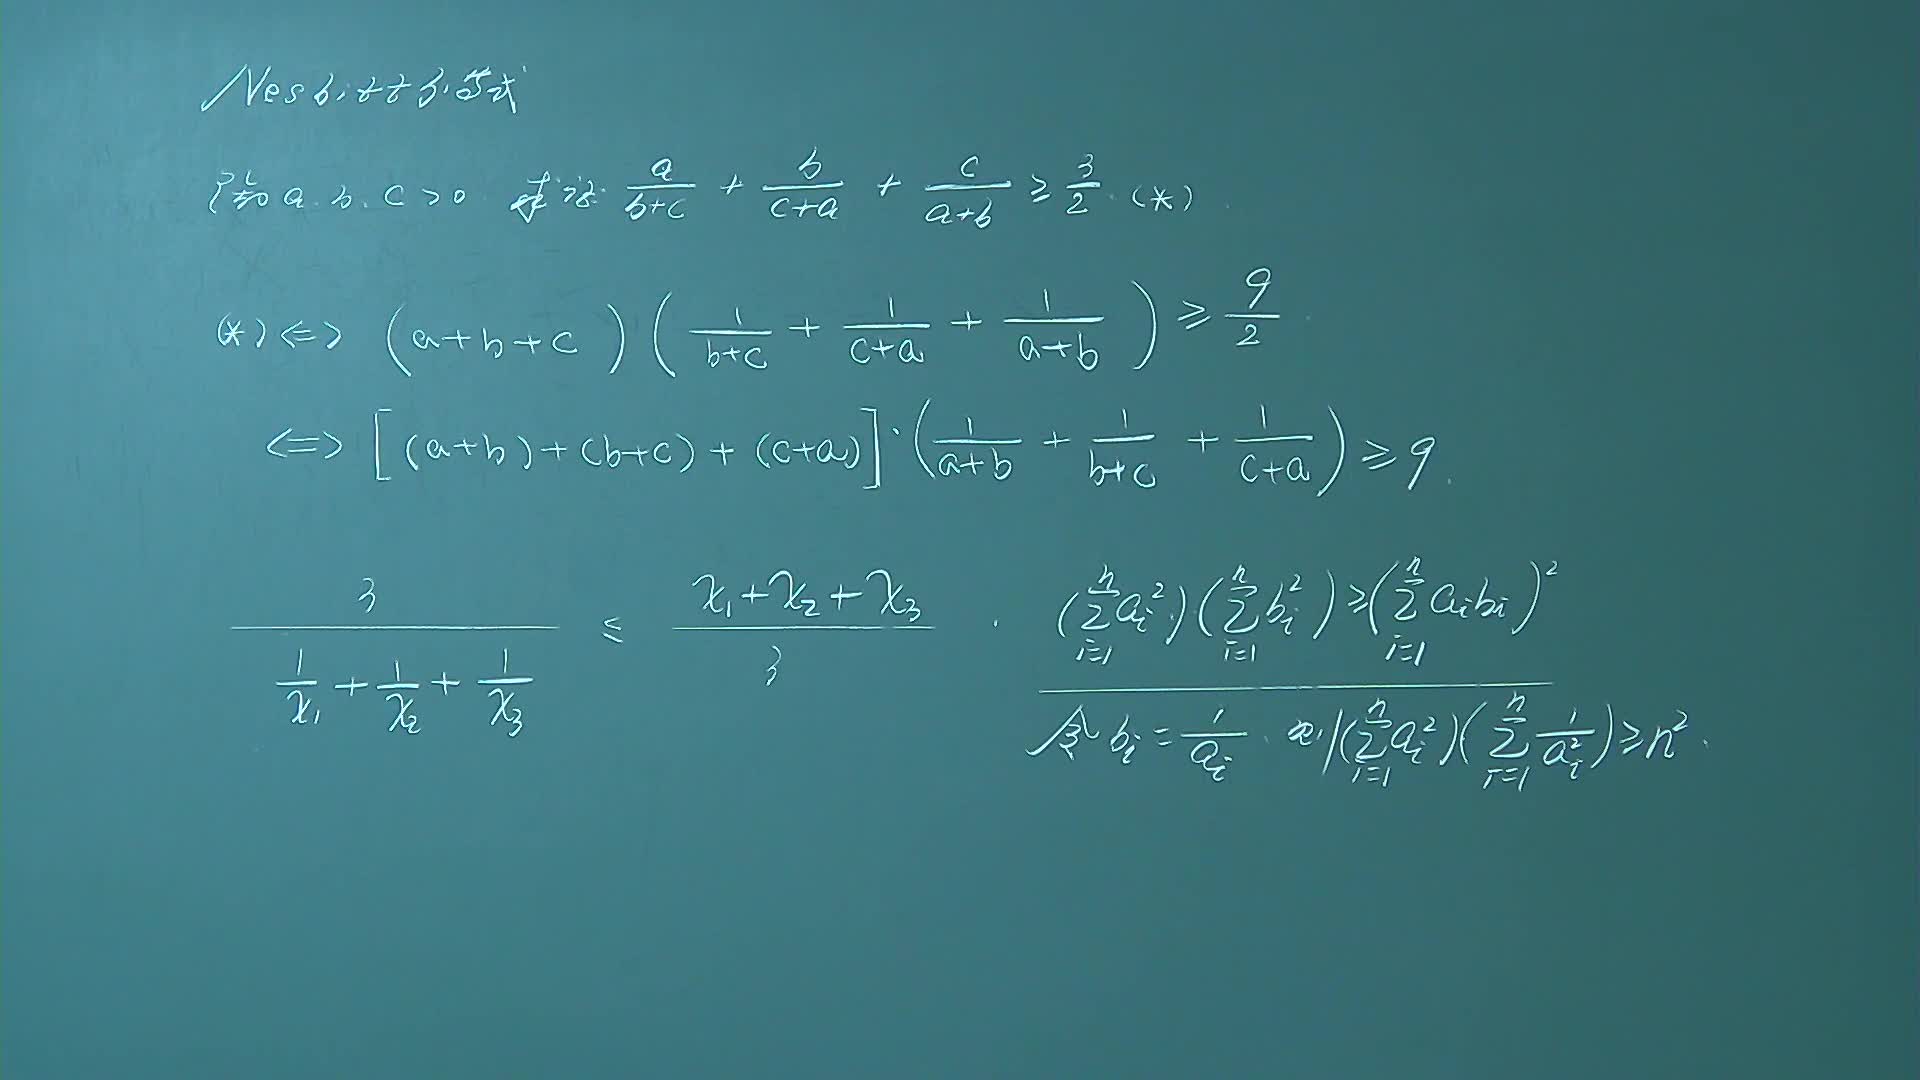 Nesbitt不等式
已知a.b.c>0 求证: a/(b+c) + b/(c+a) + c/(a+b) ≥ 3/2. (*)
(*) <=> (a+b+c)(1/(b+c) + 1/(c+a) + 1/(a+b)) ≥ 9/2.
<=> [(a+b)+(b+c)+(c+a)]·(1/(a+b) + 1/(b+c) + 1/(c+a)) ≥ 9.
3/(1/x₁ + 1/x₂ + 1/x₃) ≤ (x₁+x₂+x₃)/3.
(∑_{i=1}^{n} a_i²)(∑_{i=1}^{n} b_i²) ≥ (∑_{i=1}^{n} a_i b_i)²
令 b_i = 1/a_i. 则(∑_{i=1}^{n} a_i²)(∑_{i=1}^{n} 1/a_i²) ≥ n².